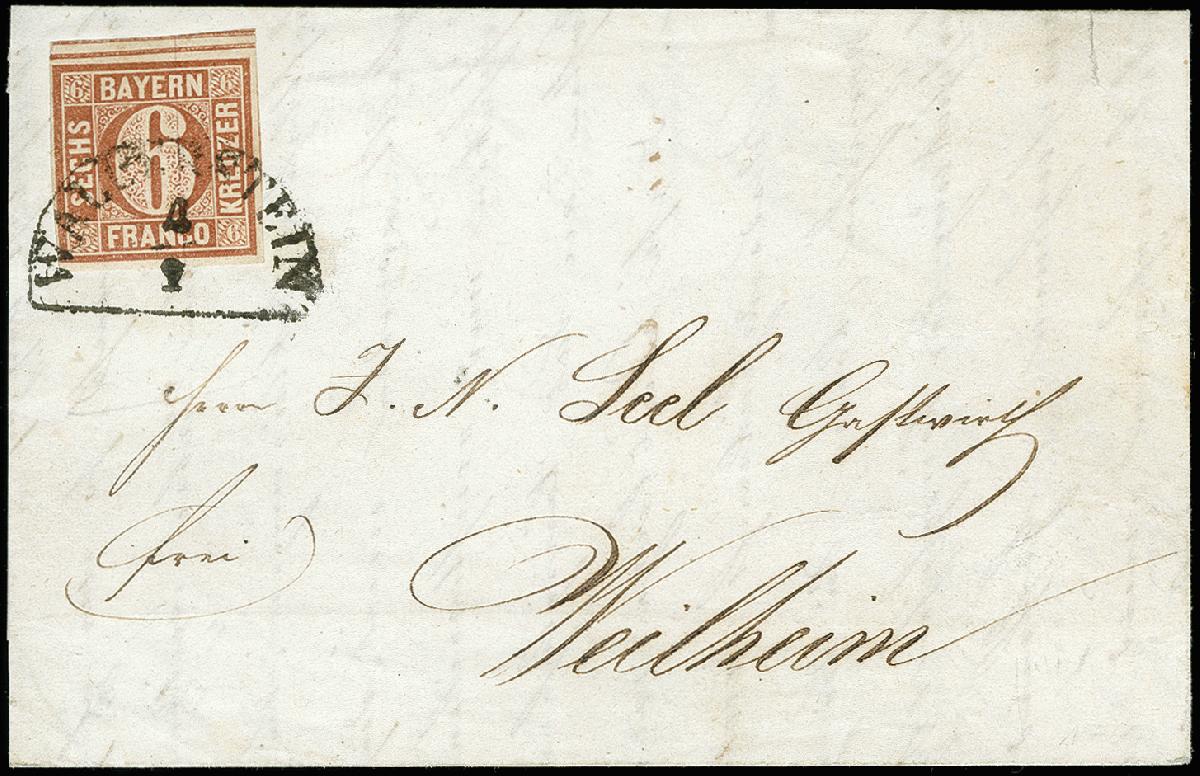 6 BAYERN 6
SECHS 6 KREUZER
6 FRANCO 6
WALLERSTEIN
4
Herrn J. N. Seel Gastwirth
frei
Weilheim